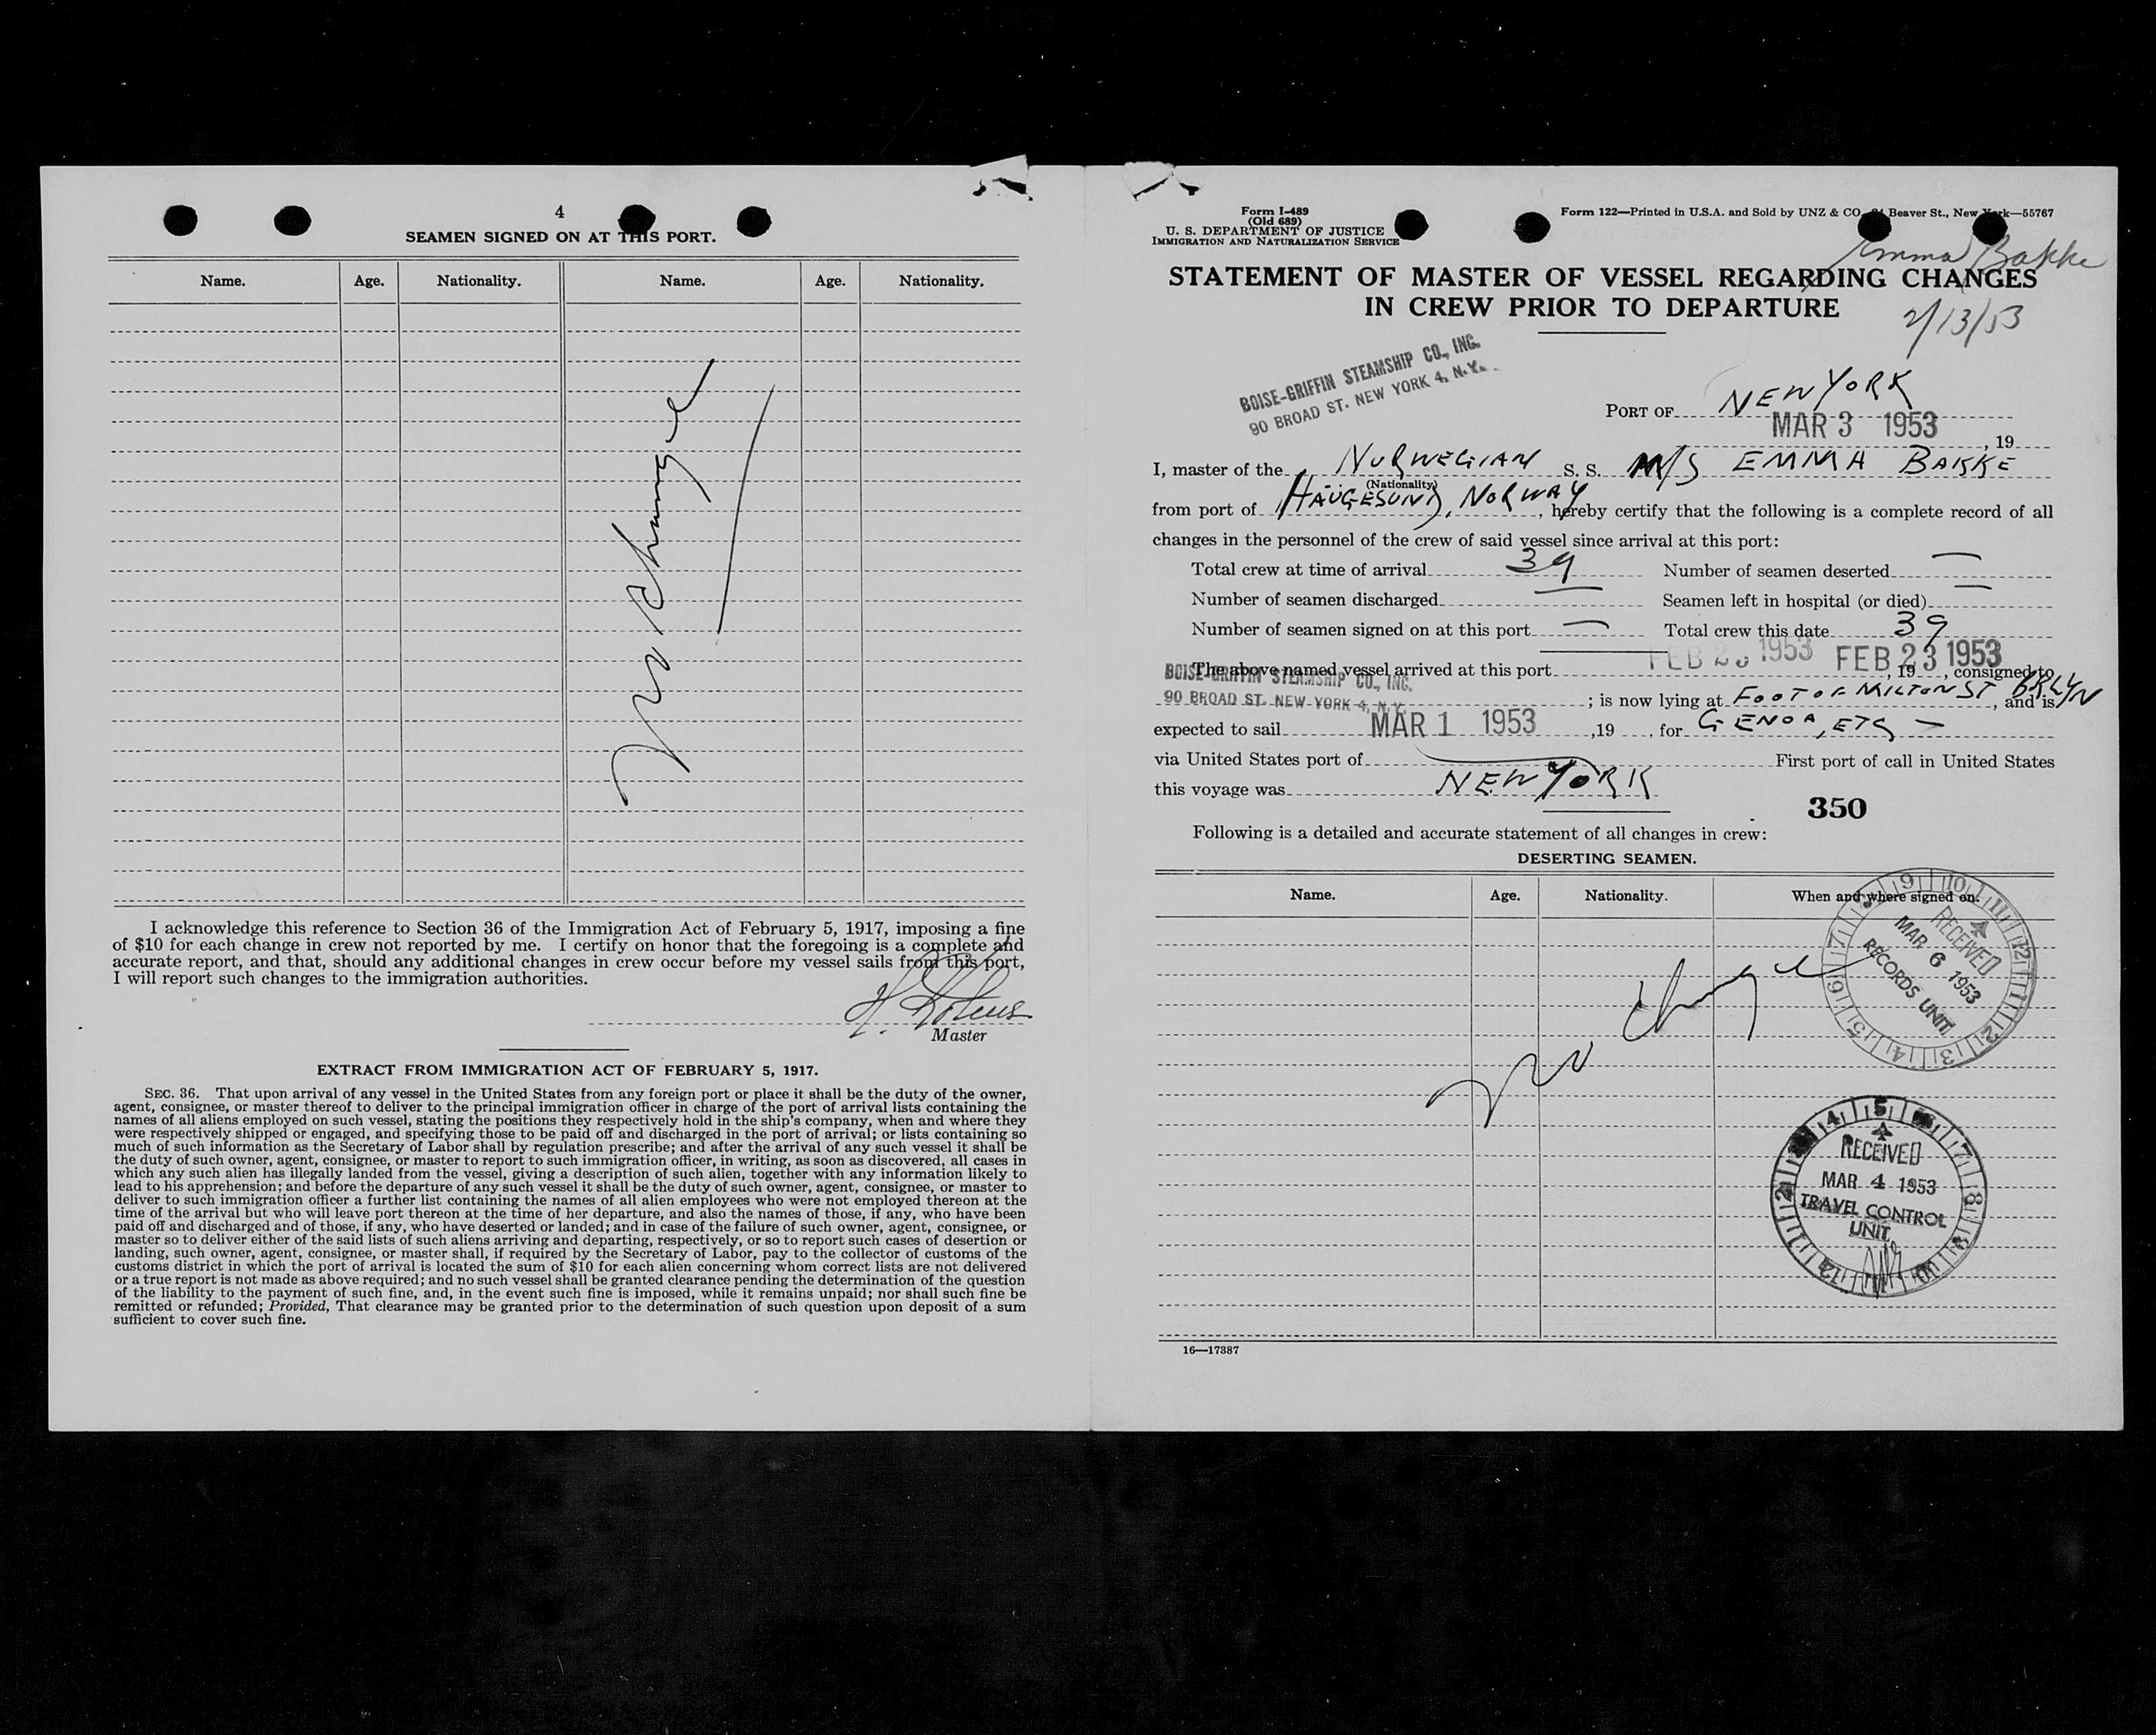 4
SEAMEN SIGNED ON AT THIS PORT.
Name. Age. Nationality. Name. Age. Nationality.
no change
I acknowledge this reference to Section 36 of the Immigration Act of February 5, 1917, imposing a fine
of $10 for each change in crew not reported by me. I certify on honor that the foregoing is a complete and
accurate report, and that, should any additional changes in crew occur before my vessel sails from this port,
I will report such changes to the immigration authorities.
Master
EXTRACT FROM IMMIGRATION ACT OF FEBRUARY 5, 1917.
SEC. 36. That upon arrival of any vessel in the United States from any foreign port or place it shall be the duty of the owner,
agent, consignee, or master thereof to deliver to the principal immigration officer in charge of the port of arrival lists containing the
names of all aliens employed on such vessel, stating the positions they respectively hold in the ship's company, when and where they
were respectively shipped or engaged, and specifying those to be paid off and discharged in the port of arrival; or lists containing so
much of such information as the Secretary of Labor shall by regulation prescribe; and after the arrival of any such vessel it shall be
the duty of such owner, agent, consignee, or master to report to such immigration officer, in writing, as soon as discovered, all cases in
which any such alien has illegally landed from the vessel, giving a description of such alien, together with any information likely to
lead to his apprehension; and before the departure of any such vessel it shall be the duty of such owner, agent, consignee, or master to
deliver to such immigration officer a further list containing the names of all alien employees who were not employed thereon at the
time of the arrival but who will leave port thereon at the time of her departure, and also the names of those, if any, who have been
paid off and discharged and of those, if any, who have deserted or landed; and in case of the failure of such owner, agent, consignee, or
master so to deliver either of the said lists of such aliens arriving and departing, respectively, or so to report such cases of desertion or
landing, such owner, agent, consignee, or master shall, if required by the Secretary of Labor, pay to the collector of customs of the
customs district in which the port of arrival is located the sum of $10 for each alien concerning whom correct lists are not delivered
or a true report is not made as above required; and no such vessel shall be granted clearance pending the determination of the question
of the liability to the payment of such fine, and, in the event such fine is imposed, while it remains unpaid; nor shall such fine be
remitted or refunded; Provided, That clearance may be granted prior to the determination of such question upon deposit of a sum
sufficient to cover such fine.
Form I-489
(Old 689)
U. S. DEPARTMENT OF JUSTICE
IMMIGRATION AND NATURALIZATION SERVICE
Form 122—Printed in U.S.A. and Sold by UNZ & CO. Beaver St., New York—55767
Emma Bakke
STATEMENT OF MASTER OF VESSEL REGARDING CHANGES
IN CREW PRIOR TO DEPARTURE
2/13/53
BOISE-GRIFFIN STEAMSHIP CO., INC.
90 BROAD ST. NEW YORK 4, N.Y.
PORT OF NEW YORK
MAR 3 1953, 19
I, master of the NORWEGIAN S. S. M/S EMMA BAKKE
(Nationality)
from port of HAUGESUND, NORWAY, hereby certify that the following is a complete record of all
changes in the personnel of the crew of said vessel since arrival at this port:
Total crew at time of arrival 39 Number of seamen deserted —
Number of seamen discharged — Seamen left in hospital (or died) —
Number of seamen signed on at this port — Total crew this date 39
The above named vessel arrived at this port FEB 23 1953 FEB 23 1953, 19, consigned to
BOISE-GRIFFIN STEAMSHIP CO., INC.
90 BROAD ST. NEW YORK 4, N.Y. ; is now lying at FOOT OF MILTON ST BKLYN, and is
expected to sail MAR 1 1953, 19, for GENOA, ETC —
via United States port of — First port of call in United States
this voyage was NEW YORK
350
Following is a detailed and accurate statement of all changes in crew:
DESERTING SEAMEN.
Name. Age. Nationality. When and where signed on.
no change
RECEIVED
MAR 6 1953
RECORDS UNIT
RECEIVED
MAR 4 1953
TRAVEL CONTROL
UNIT
16—17387